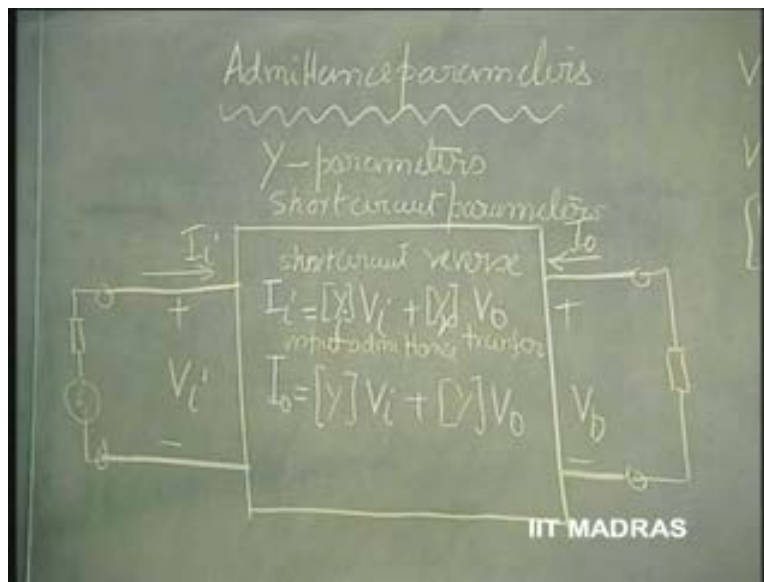 Admittance parameters
Y-parameters
short circuit parameters
Ii
Io
short circuit reverse
Ii = [Yi]Vi + [Yr] Vo
input admittance transfer
Io = [Y]Vi + [Y]Vo
+
Vi
-
+
Vo
-
V
V
[
IIT MADRAS